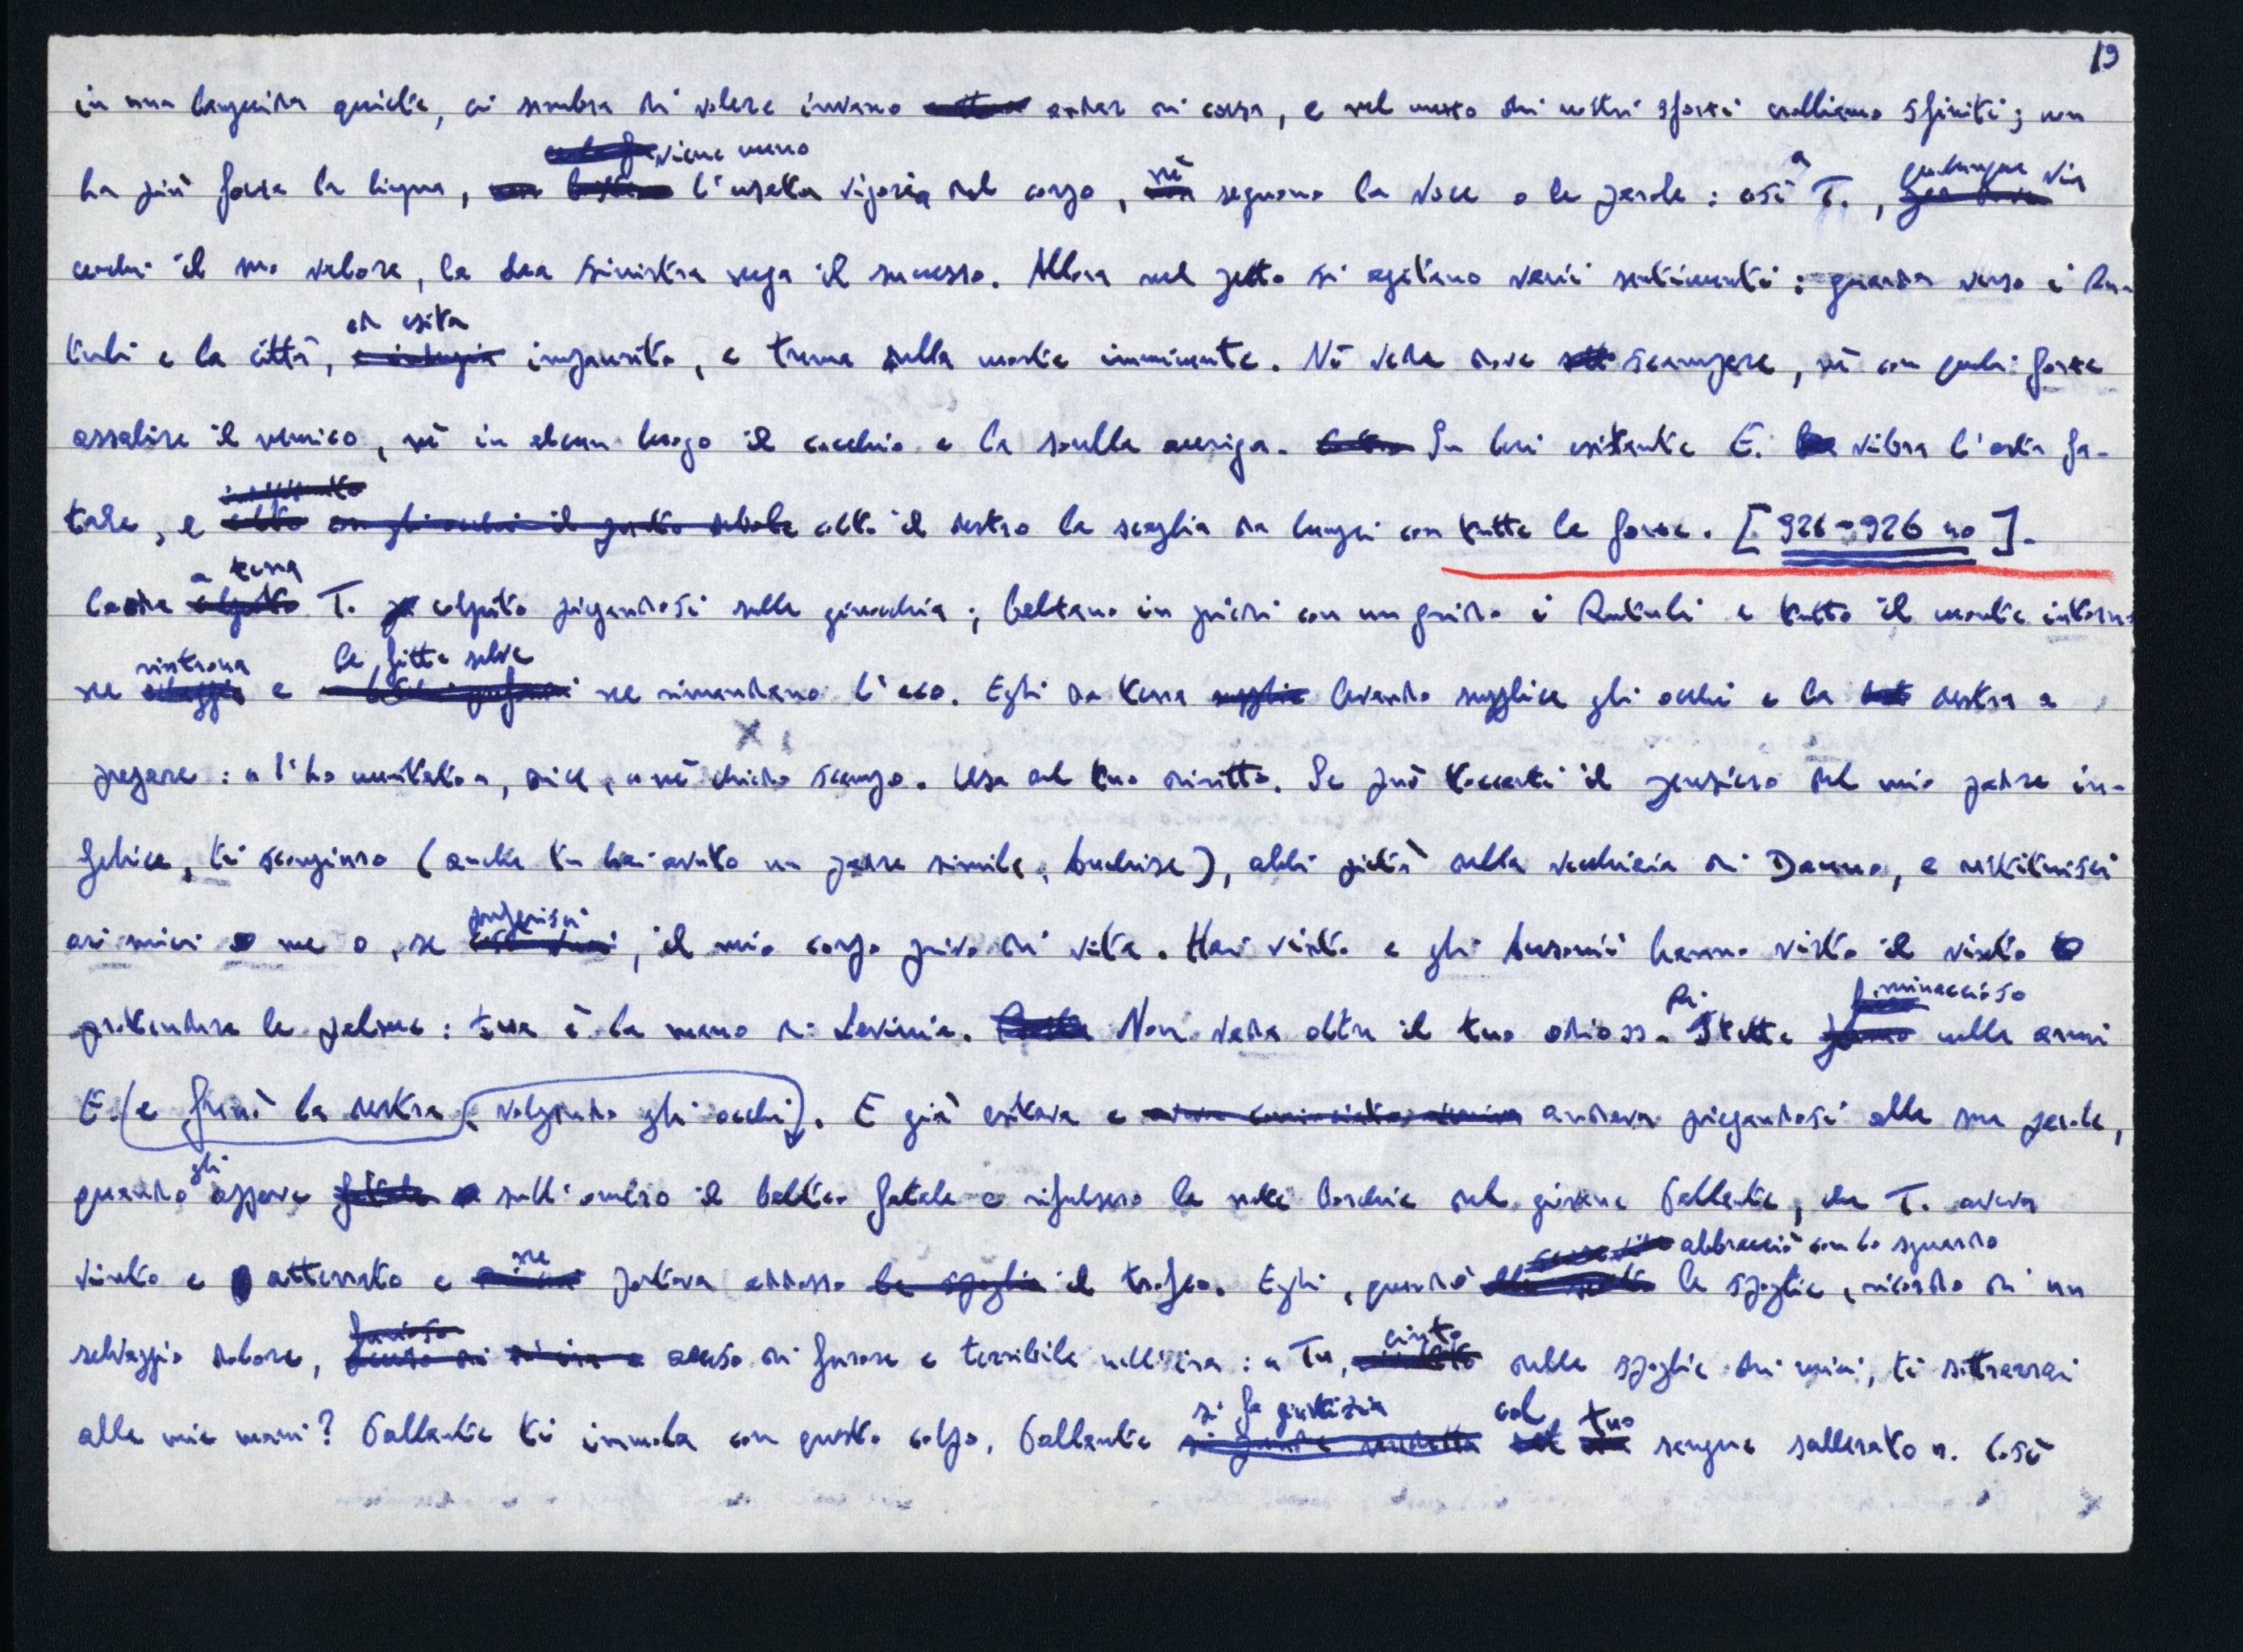 19
in una languida quiete, ci sembra di volere invano andar di corsa, e nel mezzo dei nostri sforzi crolliamo sfiniti; non
viene meno
ha più forza la lingua, l'usata vigoria del corpo, né seguono la voce o le parole: così a T., qualunque via
cerchi il suo valore, la dea sinistra nega il successo. Allora nel petto si agitano varii sentimenti: guarda verso i Ru-
ed esita
tuli e la città, e indugia impaurito, e trema della morte imminente. Né vede dove scampare, né con quali forze
assalire il nemico, né in alcun luogo il cocchio e la sorella auriga. Su lui esitante E. vibra l'asta fa-
tale, e colto con gli occhi il punto debole colto il destro la scaglia da lungi con tutte le forze. [926-926 no].
a terra
Cadde colpito T. colpito piegandosi sulle ginocchia; balzano in piedi con un grido i Rutuli e tutto il monte intorno
rintrona le fitte selve
ne e ne rimandano l'eco. Egli da terra levando supplice gli occhi e la destra a
pregare: «l'ho meritato», dice, «né chiedo scampo. Usa del tuo diritto. Se può toccarti il pensiero del mio padre in-
felice, ti scongiuro (anche tu hai avuto un padre simile, Anchise), abbi pietà della vecchiaia di Dauno, e restituisci
preferisci
ai miei me o, se, il mio corpo privo di vita. Hai vinto e gli Ausonii hanno visto il vinto
protendere le palme: tua è la mano di Lavinia. Non vada oltre il tuo odio». Stette minaccioso nelle armi
E. (e frenò la destra) (volgendo gli occhi). E già esitava e andava piegandosi alle sue parole,
gli
quando apparve sull'omero il balteo fatale e rifulsero le note borchie del giovane Pallante, che T. aveva
ne abbracciò con lo sguardo
vinto e atterrato e portava addosso le spoglie il trofeo. Egli, quando le spoglie, ricordo di un
furioso cinto
selvaggio dolore, acceso di furore e terribile nell'ira: «Tu, delle spoglie dei miei, ti sottrarrai
si fa giustizia col tuo
alle mie mani? Pallante ti immola con questo colpo, Pallante si prende vendetta sangue scellerato». Così